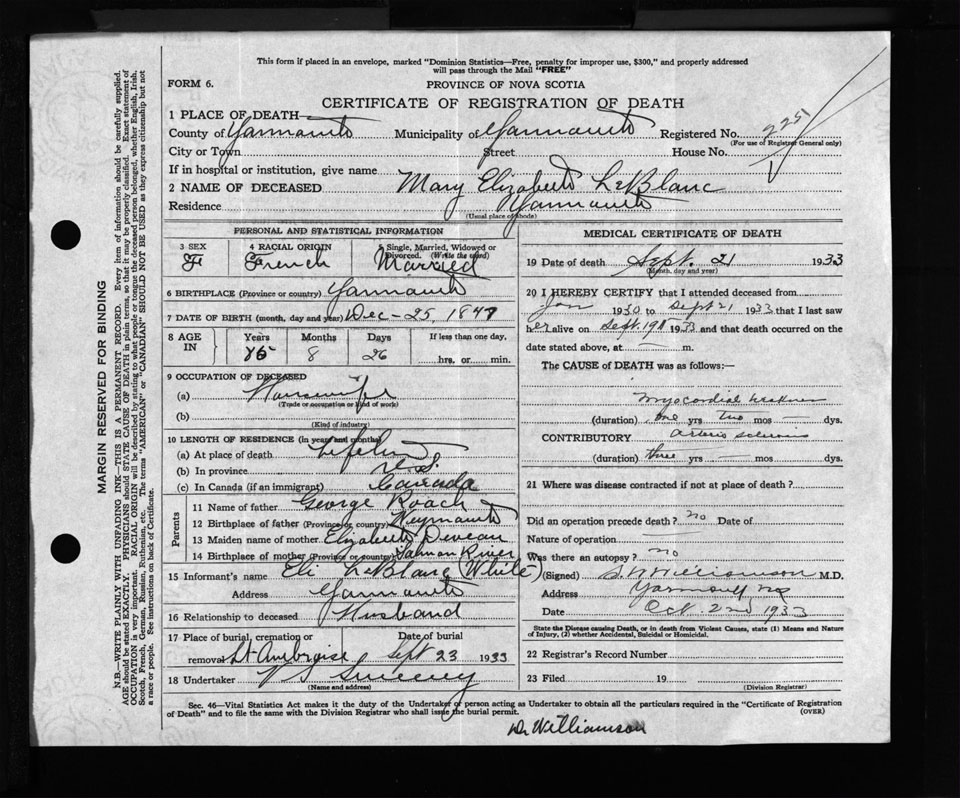 This form if placed in an envelope, marked "Dominion Statistics—Free, penalty for improper use, $300," and properly addressed
will pass through the Mail "FREE"
FORM 6.
PROVINCE OF NOVA SCOTIA
CERTIFICATE OF REGISTRATION OF DEATH
1 PLACE OF DEATH—
County of Yarmouth Municipality of Yarmouth Registered No. 225
(For use of Registrar General only)
City or Town Street House No.
If in hospital or institution, give name
2 NAME OF DECEASED Mary Elizabeth LeBlanc
Residence Yarmouth
(Usual place of abode)
PERSONAL AND STATISTICAL INFORMATION
3 SEX F
4 RACIAL ORIGIN French
5 Single, Married, Widowed or Divorced. (Write the word) Married
6 BIRTHPLACE (Province or country) Yarmouth
7 DATE OF BIRTH (month, day and year) Dec - 25, 1847
8 AGE IN Years Months 8 Days 26 If less than one day, hrs. or min.
9 OCCUPATION OF DECEASED
(a) Housewife
(Trade or occupation or kind of work)
(b)
(Kind of industry)
10 LENGTH OF RESIDENCE (in years and months)
(a) At place of death Lifetime
(b) In province N.S.
(c) In Canada (if an immigrant) Canada
Parents
11 Name of father George Roach
12 Birthplace of father (Province or country) Weymouth
13 Maiden name of mother Elizabeth Deveau
14 Birthplace of mother (Province or country) Salmon River
15 Informant's name Eli LeBlanc (White)
Address Yarmouth
16 Relationship to deceased Husband
17 Place of burial, cremation or removal St Ambroise Date of burial Sept 23 1933
18 Undertaker V S Sweeny
(Name and address)
MEDICAL CERTIFICATE OF DEATH
19 Date of death Sept. 21 1933
(Month, day and year)
20 I HEREBY CERTIFY that I attended deceased from
Jan 1930 to Sept 21 1933 that I last saw
her alive on Sept. 19 1933 and that death occurred on the
date stated above, at — m.
The CAUSE of DEATH was as follows:—
Myocardial weakness
(duration) one yrs two mos dys.
CONTRIBUTORY Arterio sclerosis
(duration) three yrs — mos dys.
21 Where was disease contracted if not at place of death?
Did an operation precede death? no Date of
Nature of operation —
Was there an autopsy? no
(Signed) Williamson M.D.
Address Yarmouth NS
Date Oct. 2nd 1933
State the Disease causing Death, or in death from Violent Causes, state (1) Means and Nature
of Injury, (2) whether Accidental, Suicidal or Homicidal.
22 Registrar's Record Number
23 Filed 19
(Division Registrar)
Sec. 46—Vital Statistics Act makes it the duty of the Undertaker or person acting as Undertaker to obtain all the particulars required in the "Certificate of Registration
of Death" and to file the same with the Division Registrar who shall issue the burial permit. (OVER)
Dr Williamson
MARGIN RESERVED FOR BINDING
N.B.—WRITE PLAINLY WITH UNFADING INK—THIS IS A PERMANENT RECORD. Every item of information should be carefully supplied.
AGE should be stated EXACTLY. PHYSICIANS should STATE CAUSE OF DEATH in plain terms, so that it may be properly classified. Exact statement of
OCCUPATION is very important. RACIAL ORIGIN will be described by stating to what people or tongue the deceased person belonged, whether English, Irish,
Scotch, French, German, Russian, Ruthenian, etc. The terms "AMERICAN" or "CANADIAN" SHOULD NOT BE USED as they express citizenship but not
a race or people. See instructions on back of Certificate.